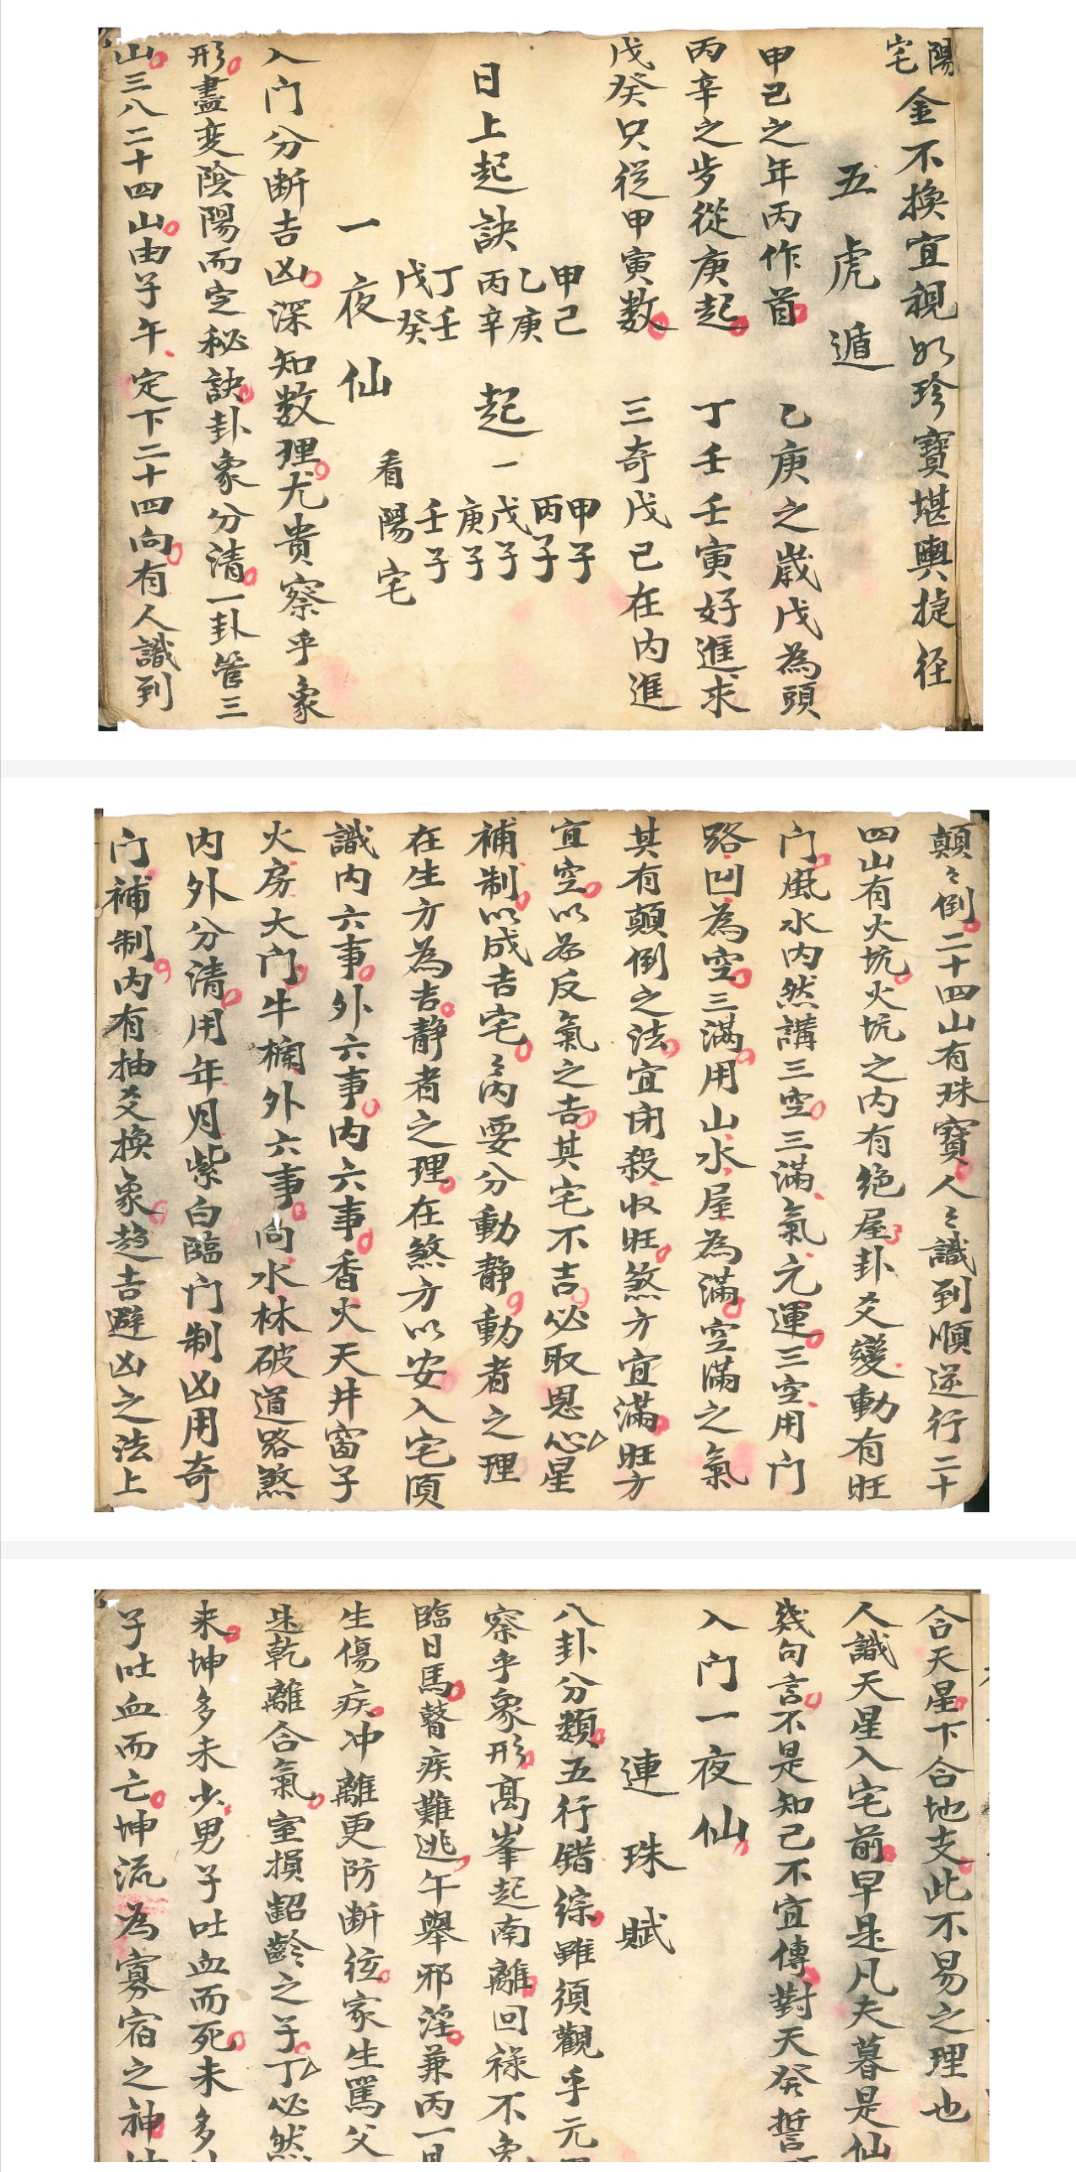 陽宅金不換宜視如珍寶堪輿捷径
五虎遁
甲己之年丙作首 乙庚之歲戊為頭
丙辛之步從庚起 丁壬壬寅好進求
戊癸只從甲寅数 三奇戊己在内進
日上起訣 甲己 乙庚 丙辛 丁壬 戊癸 起一 甲子 丙子 戊子 庚子 壬子
一夜仙 看陽宅
入门分断吉凶深知数理尤貴察乎象
形盡变陰陽而定秘訣卦象分清一卦管三
山三八二十四山由子午定下二十四向有人識到
顛々倒二十四山有珠寶人々識到順逆行二十
四山有火坑火坑之内有绝屋卦爻變動有旺
门風水内然講三空三滿氣元運三空用门
路凹為空三滿用山水屋為滿空滿之氣
其有顛倒之法宜闭殺收旺煞方宜滿旺方
宜空以為反氣之吉其宅不吉必取恩星
補制以成吉宅々内要分動静動者之理
在生方為吉静者之理在煞方以安入宅須
識内六事外六事内六事香火天井窗子
火房大门牛栏外六事向水林破道路煞
内外分清用年月紫白臨门制凶用奇
门補制内有抽爻换象趋吉避凶之法上
合天星下合地支此不易之理也
人識天星入宅前早是凡夫暮是仙
幾句言不是知己不宜傳對天發誓
入门一夜仙
連珠賦
八卦分類五行错综雖須觀乎元
察乎象形高峯起南離回禄不免
臨日馬瞽疾難逃午舉邪淫兼丙一
生傷疾冲離更防断弦家生罵父
逆乾離合氣室損齠齡之子丁必然
来坤多未少男子吐血而死未多
子吐血而亡坤流為寡宿之神